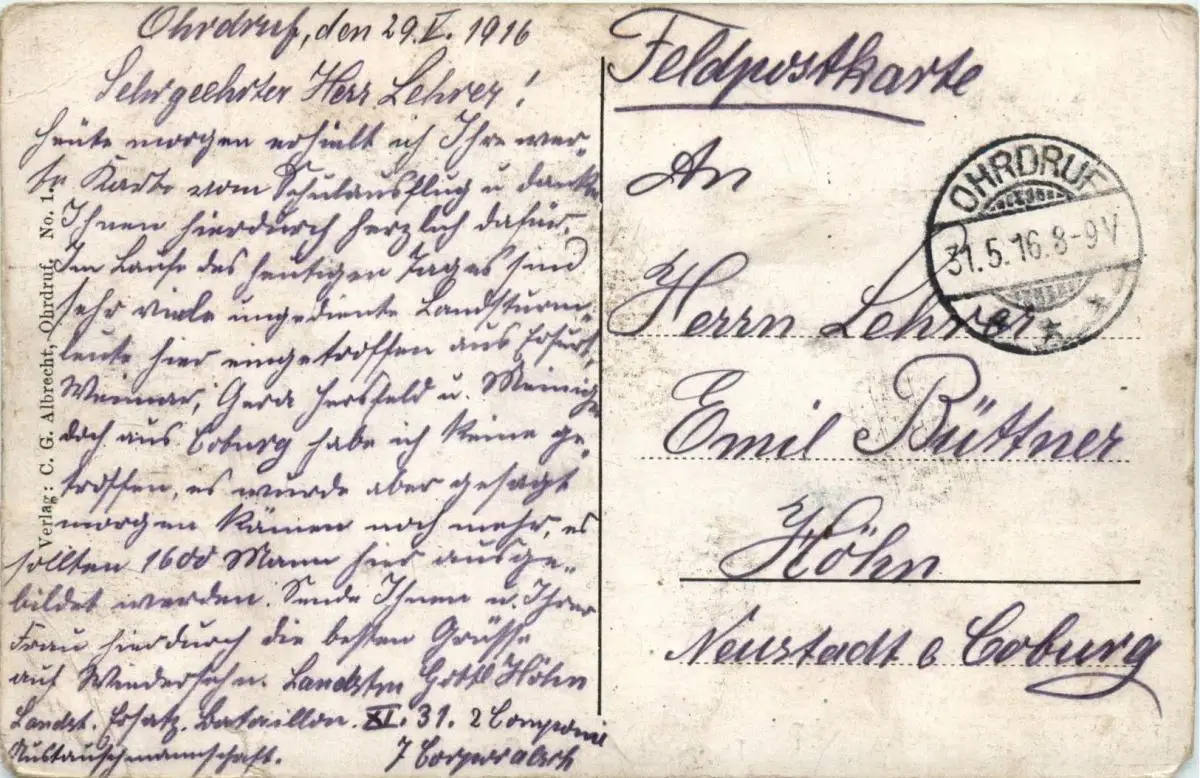 Ohrdruf, den 29.V. 1916
Sehrgeehrter Herr Lehrer!
Heute morgen erhielt ich Ihre wer-
te Karte vom Schulausflug u danke
Ihnen hierdurch herzlich dafür.
Im Laufe des heutigen Tages sind
sehr viele ungediente Landsturm-
leute hier eingetroffen aus Erfurt,
Weimar, Gera Hersfeld u. Meining
doch aus Coburg habe ich keine ge-
troffen, es wurde aber gesagt
morgen kämen noch mehr, es
sollten 1600 Mann hier ausge-
bildet werden. Sende Ihnen u. Ihrer
Frau hierdurch die besten Grüsse
auf Wiedersehn. Landstm Gottl Höhn
Landst. Ersatz. Bataillon. XI. 31. 2 Companie
Austauschmannschaft. 7 Corporalsch
Verlag: C. G. Albrecht, Ohrdruf. No. 1.
Feldpostkarte
An
Herrn Lehrer
Emil Büttner
Höhn
Neustadt b Coburg
OHRDRUF
31.5.16.8-9V